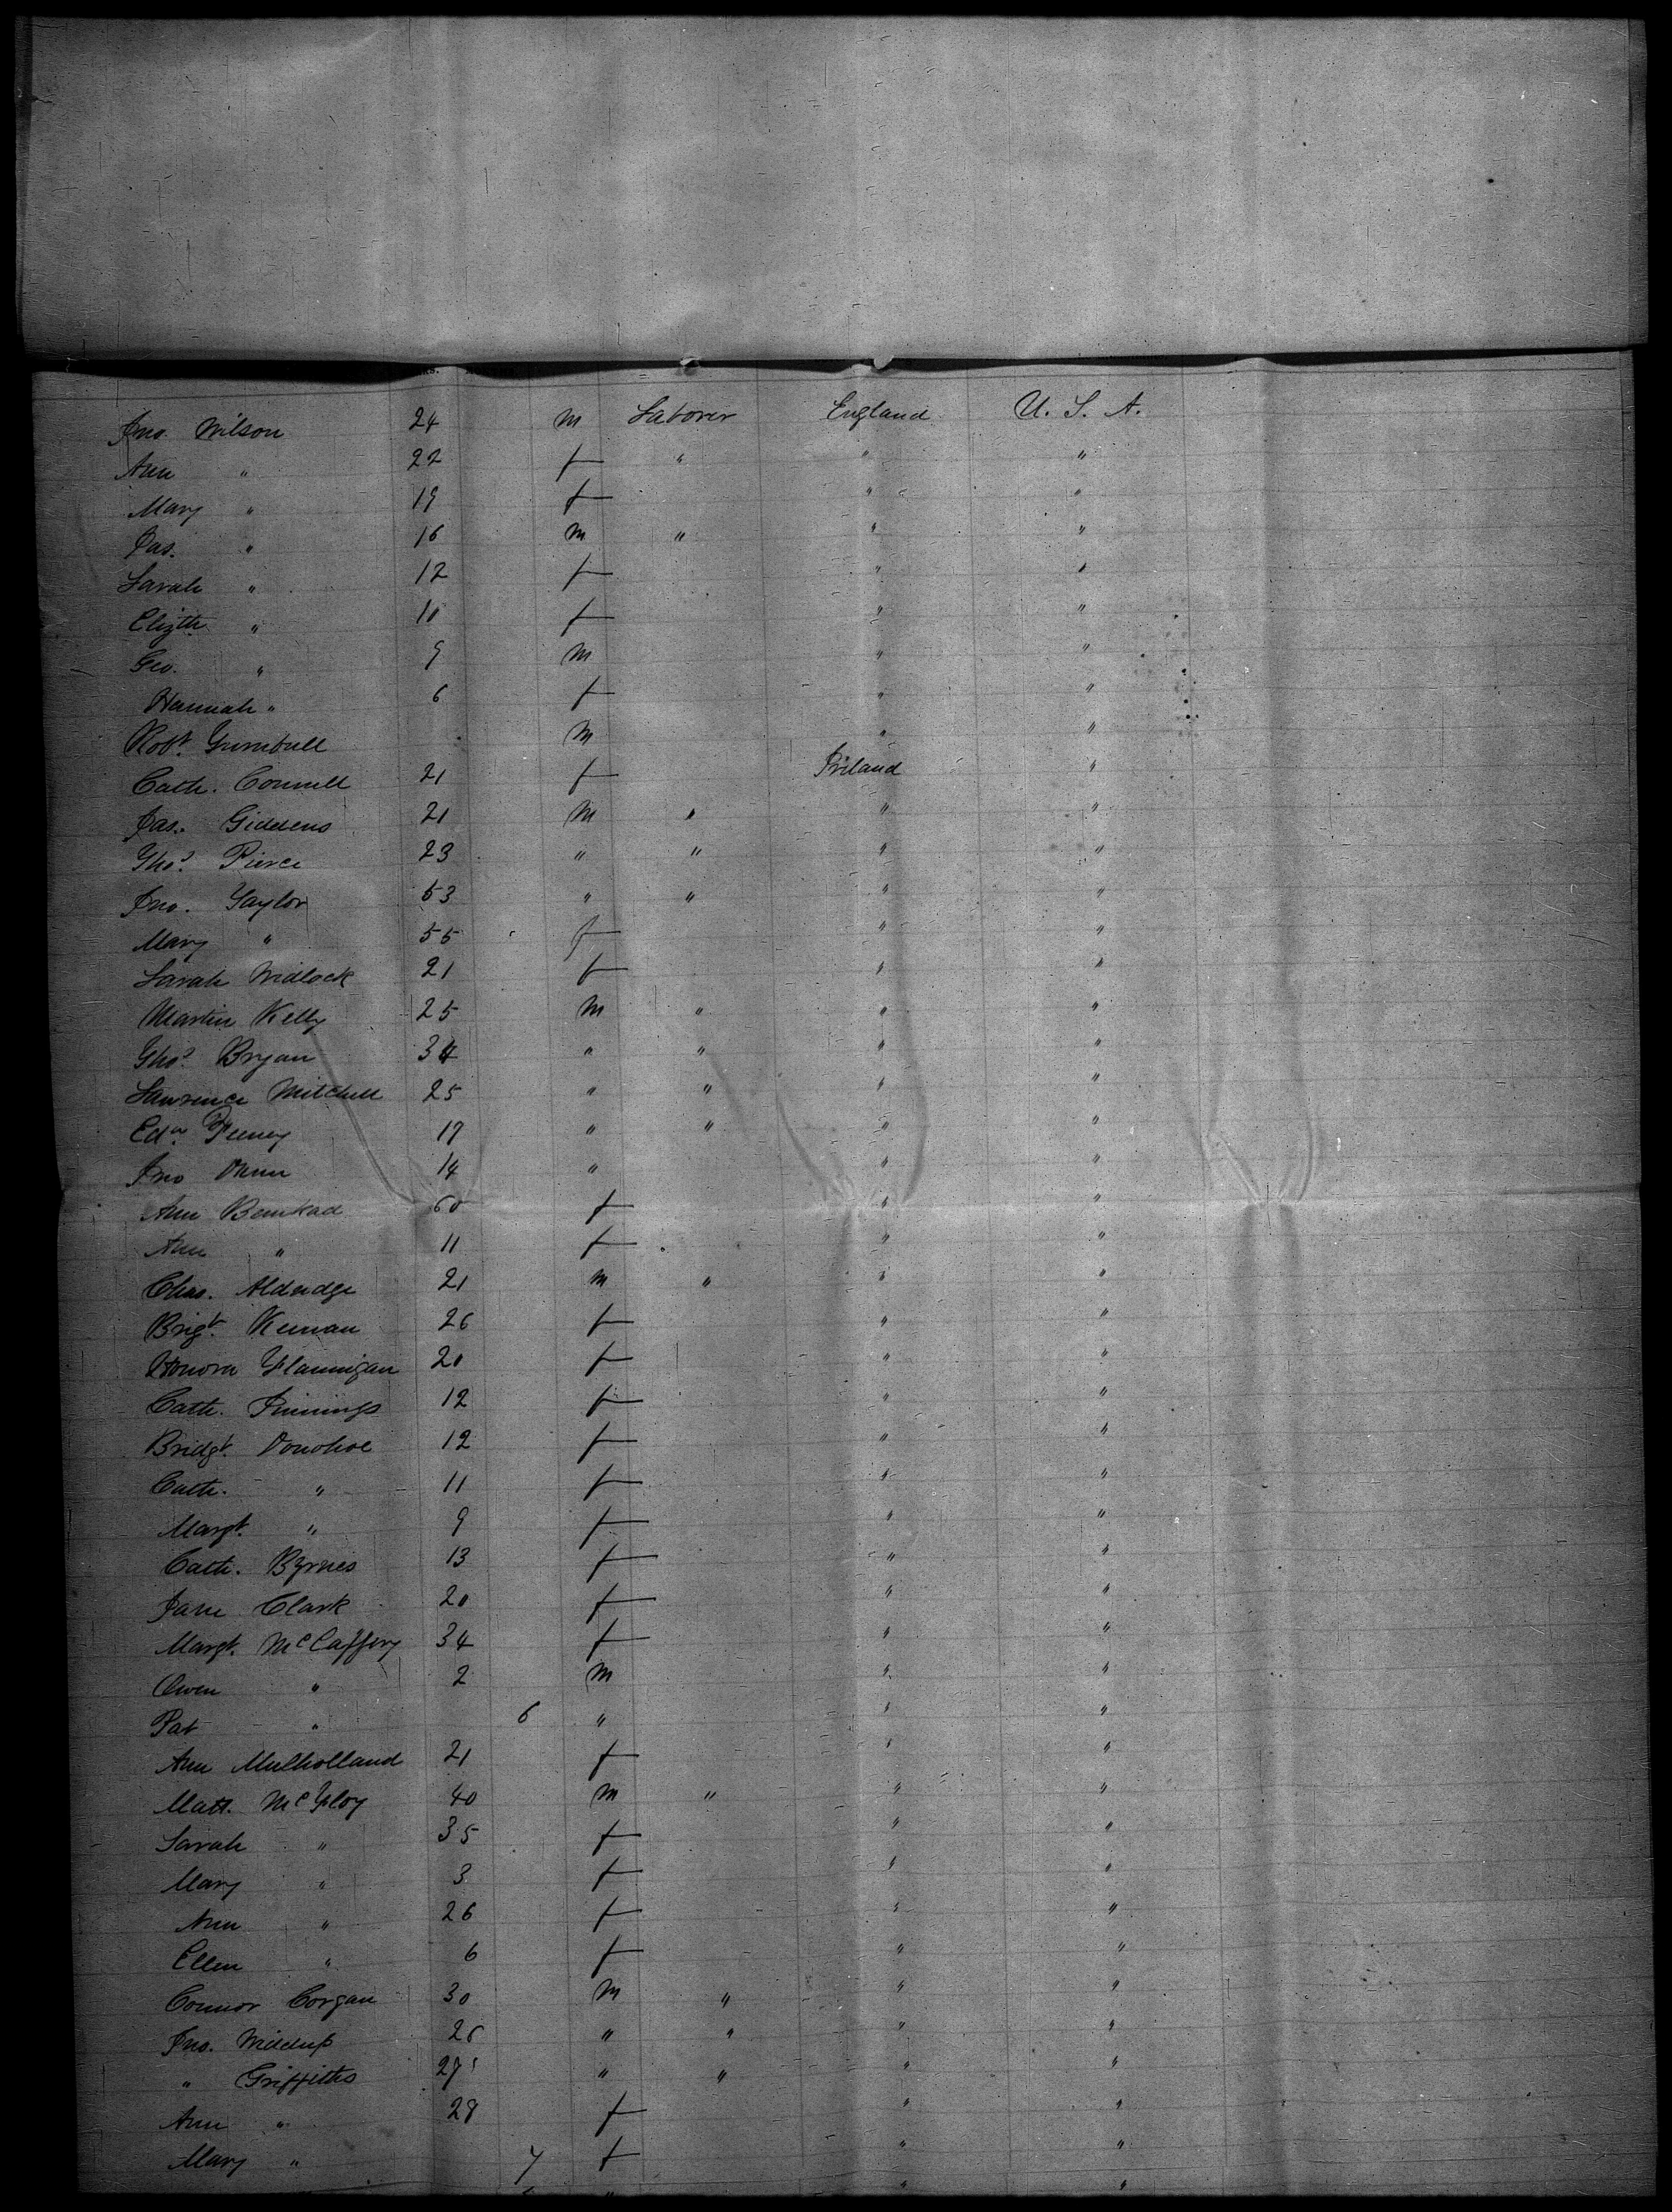 Jno. Wilson 24 M Laborer England U. S. A.
Ann " 22 f " " "
Mary " 19 f " "
Jas. " 16 M " " "
Sarah " 12 f " "
Elizth " 10 f " "
Geo. " 9 M " "
Hannah " 6 f " "
Robt. M " "
Cath. Connell 21 f Ireland "
Jas. Giddens 21 M " " "
Thos. Pierce 23 " " " "
Jno. Taylor 53 " " " "
Mary " 55 f " "
Sarah Widlock 21 f " "
Martin Kelly 25 M " " "
Thos. Bryan 34 " " " "
Lawrence Mitchell 25 " " " "
Edw. 19 " " " "
Jno Dunn 14 " " "
Ann 60 f " "
Ann " 11 f " "
Chas. Alderdge 21 M " " "
Brigt. Keenan 26 f " "
Honora Flannigan 20 f " "
Cath. Jinnings 12 f " "
Bridgt. Donohoe 12 f " "
Cath. " 11 f " "
Margt. " 9 f " "
Cath. Byrnes 13 f " "
Jane Clark 20 f " "
Margt. McCaffery 34 f " "
Owen " 2 M " "
Pat " 6 " " "
Ann Mulholland 21 f " "
Matt. McFloy 40 M " " "
Sarah " 35 f " "
Mary " 3 f " "
Ann " 26 f " "
Ellen " 6 f " "
Connor Corgan 30 M " " "
Jno. Widdup 26 " " " "
" Griffiths 27 " " " "
Ann " 28 f " "
Mary " 7 f " "
" " "